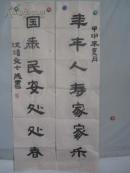 甲申年夏月
丰年人寿家家乐
国泰民安处处春